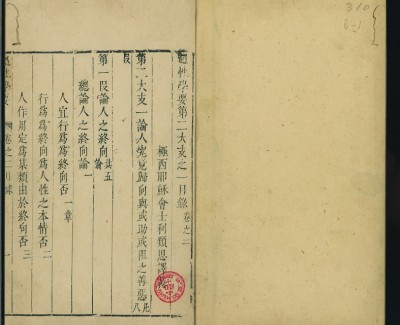 超性學要第二大支之一目錄 卷之二
極西耶穌會士利類思譯
第二大支一論人究竟歸向與或助或阻之善惡 凡八
段
第一段論人之終向論 共五
總論人之終向論一
人宜行為為終向否 一章
行為為終向為人性之本情否 二
人作用定為某類由於終向否 三
目錄 一
310
6-1